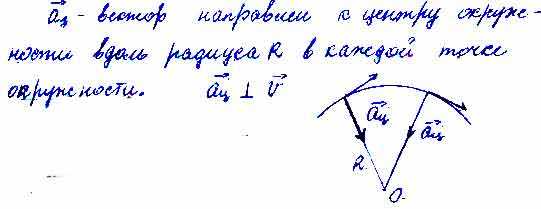 a⃗ц - вектор направлен к центру окруж-
ности вдоль радиуса R в каждой точке
окружности. a⃗ц ⊥ v⃗
a⃗ц
a⃗ц
R
O